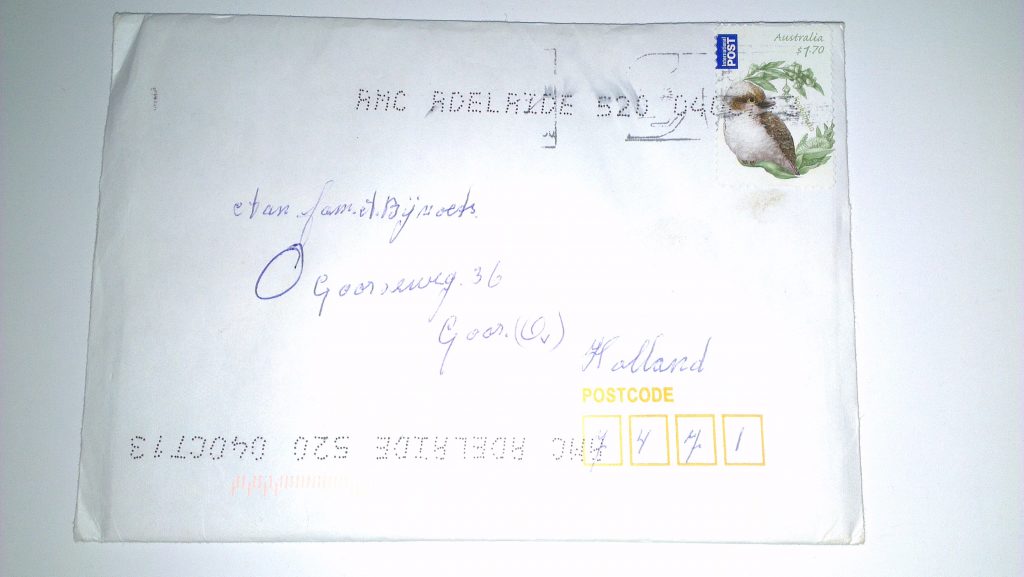 International
POST
Australia
$1.70
AMC ADELAIDE 520 040
Aan fam. d. Bijvoets
Goorseweg. 36
Goor. (Ov)
Holland
POSTCODE
7471
AMC ADELAIDE 520 04OCT13